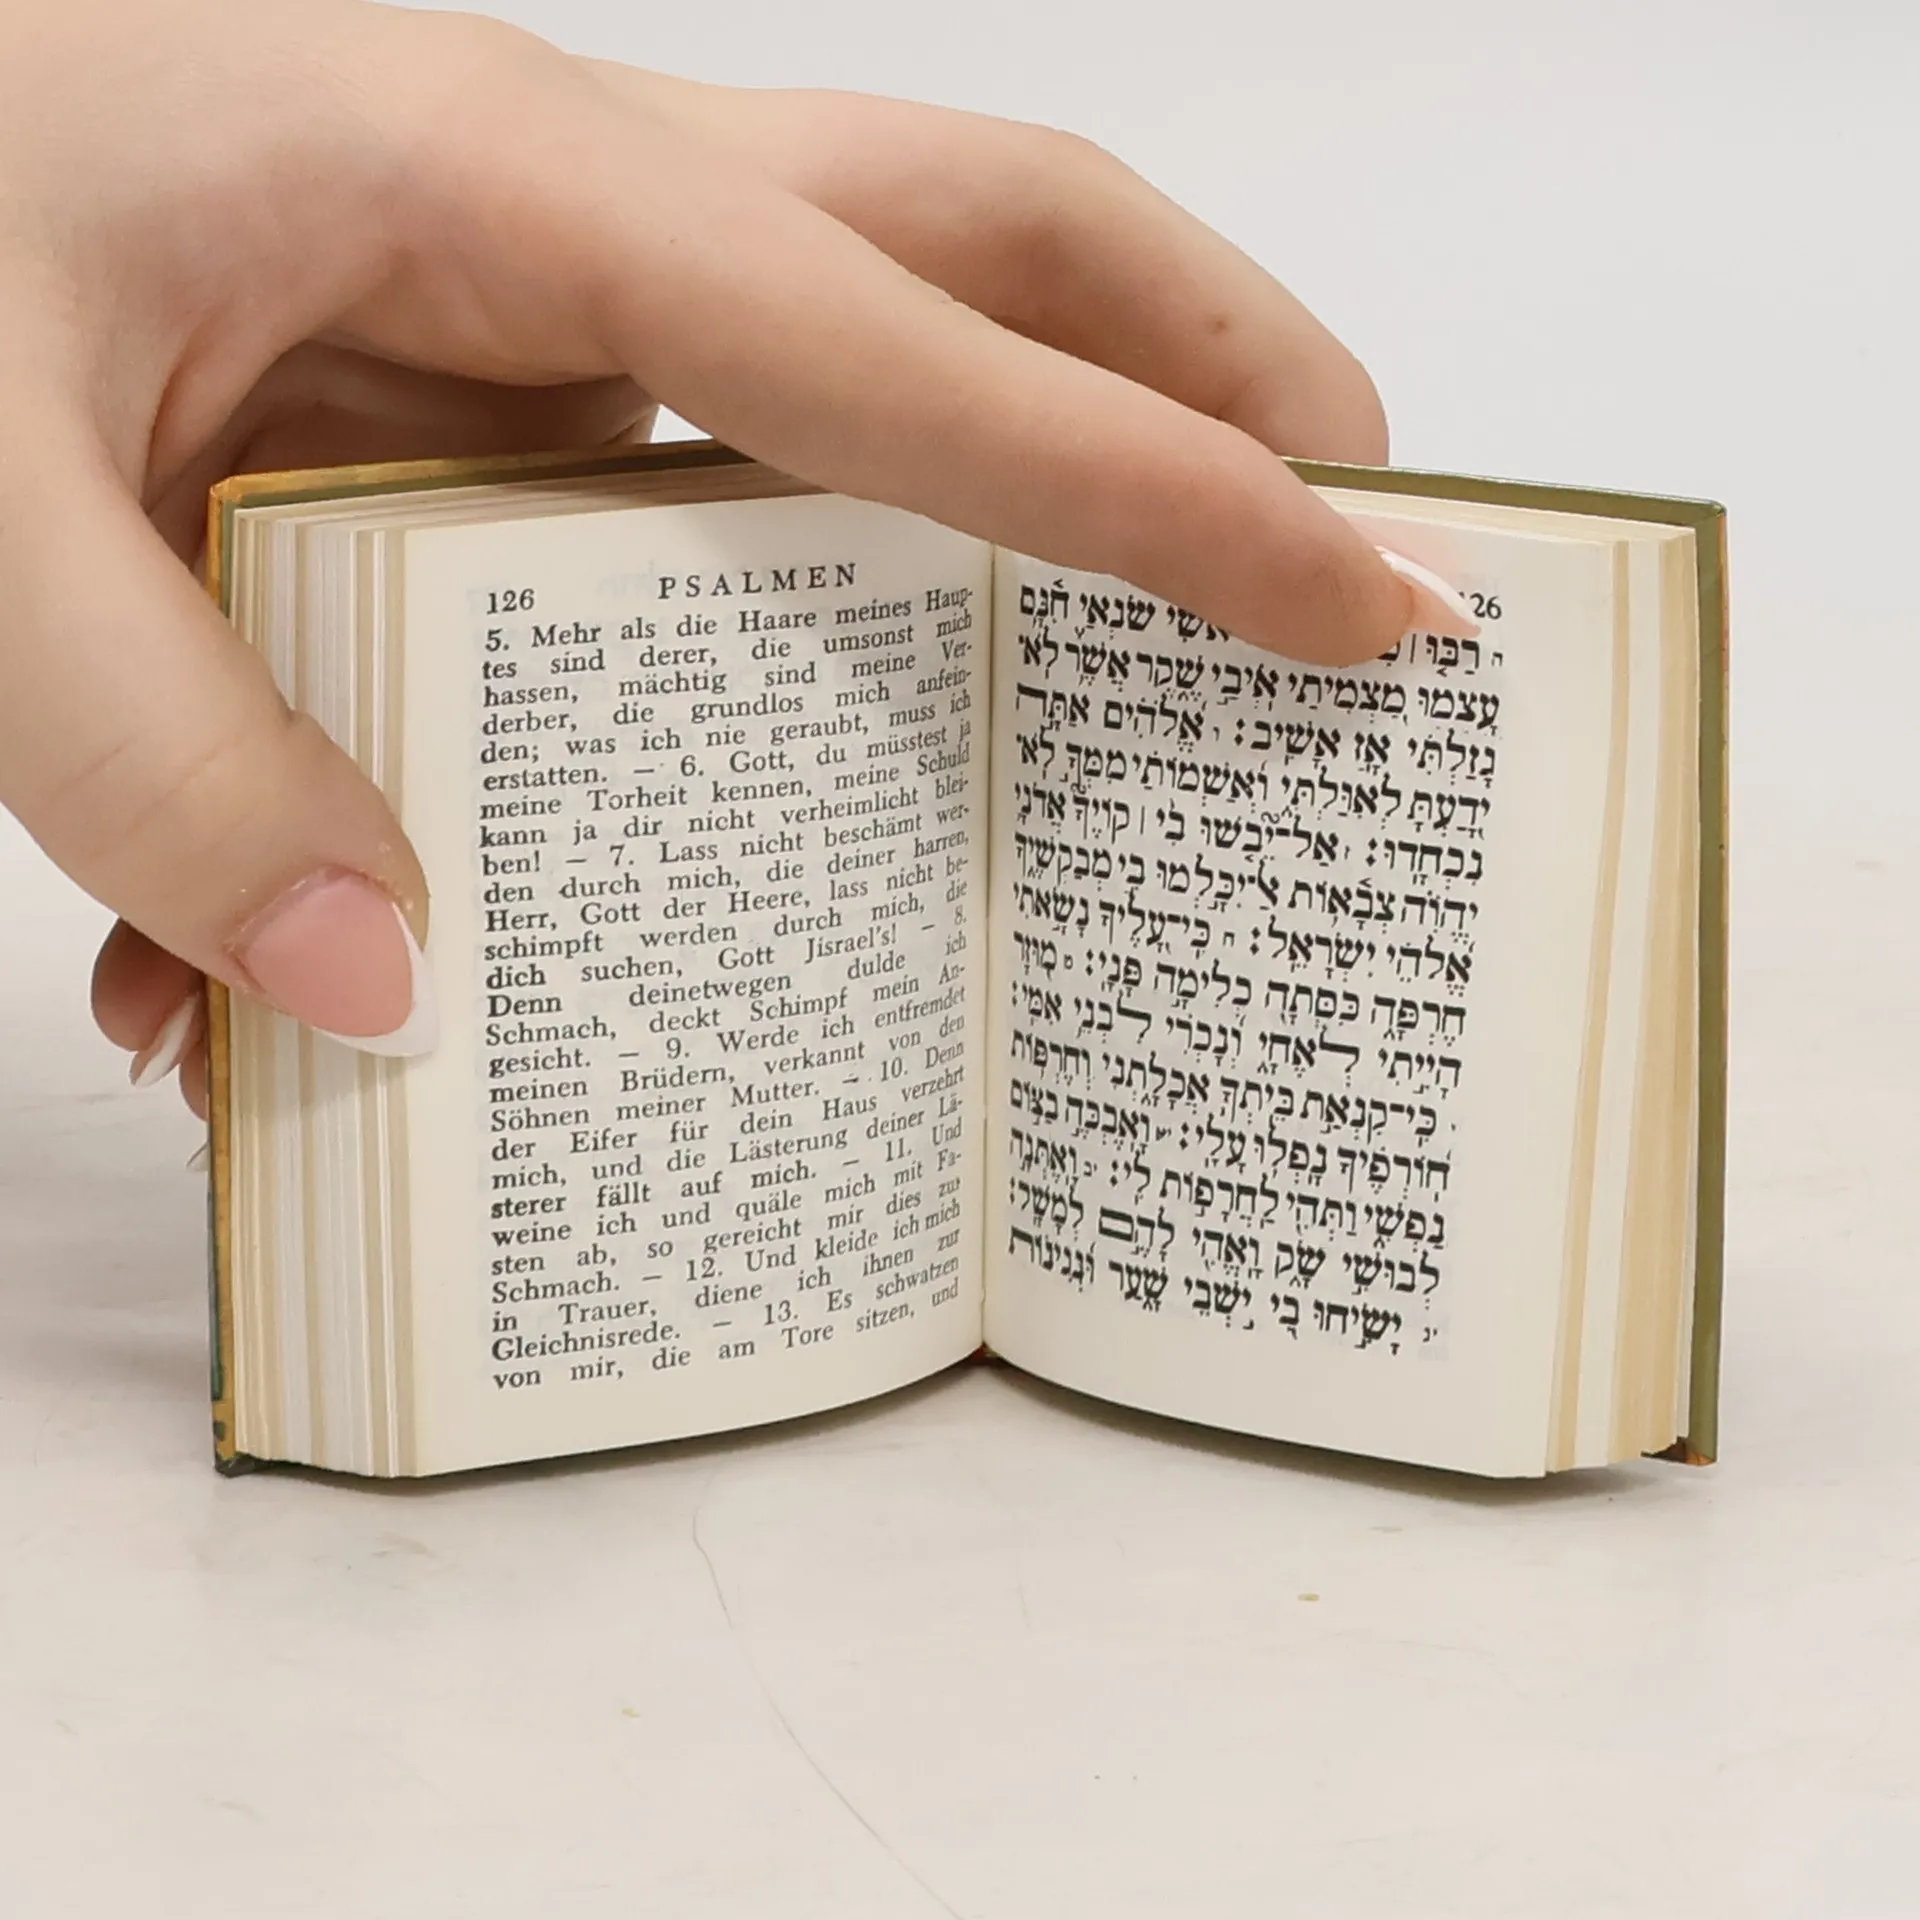 126 PSALMEN
5. Mehr als die Haare meines Haup-
tes sind derer, die umsonst mich
hassen, mächtig sind meine Ver-
derber, die grundlos mich anfein-
den; was ich nie geraubt, muss ich
erstatten. — 6. Gott, du müsstest ja
meine Torheit kennen, meine Schuld
kann ja dir nicht verheimlicht blei-
ben! — 7. Lass nicht beschämt wer-
den durch mich, die deiner harren,
Herr, Gott der Heere, lass nicht be-
schimpft werden durch mich, die
dich suchen, Gott Jisrael's! — 8.
Denn deinetwegen dulde ich
Schmach, deckt Schimpf mein An-
gesicht. — 9. Werde ich entfremdet
meinen Brüdern, verkannt von den
Söhnen meiner Mutter. — 10. Denn
der Eifer für dein Haus verzehrt
mich, und die Lästerung deiner Lä-
sterer fällt auf mich. — 11. Und
weine ich und quäle mich mit Fa-
sten ab, so gereicht mir dies zur
Schmach. — 12. Und kleide ich mich
in Trauer, diene ich ihnen zur
Gleichnisrede. — 13. Es schwatzen
von mir, die am Tore sitzen, und
26
ה רַבּוּ | שֹׂנְאַי חִנָּם
עָצְמוּ מַצְמִיתַי אֹיְבַי שֶׁקֶר אֲשֶׁר לֹא־
גָזַלְתִּי אָז אָשִׁיב: ו אֱלֹהִים אַתָּה
יָדַעְתָּ לְאִוַּלְתִּי וְאַשְׁמוֹתַי מִמְּךָ לֹא־
נִכְחָדוּ: ז אַל־יֵבֹשׁוּ בִי | קֹוֶיךָ אֲדֹנָי
יֱהֹוִה צְבָאוֹת אַל־יִכָּלְמוּ בִי מְבַקְשֶׁיךָ
אֱלֹהֵי יִשְׂרָאֵל: ח כִּי־עָלֶיךָ נָשָׂאתִי
חֶרְפָּה כִּסְּתָה כְלִמָּה פָנָי: ט מוּזָר
הָיִיתִי לְאֶחָי וְנָכְרִי לִבְנֵי אִמִּי:
י כִּי־קִנְאַת בֵּיתְךָ אֲכָלָתְנִי וְחֶרְפּוֹת
חוֹרְפֶיךָ נָפְלוּ עָלָי: יא וָאֶבְכֶּה בַצּוֹם
נַפְשִׁי וַתְּהִי לַחֲרָפוֹת לִי: יב וָאֶתְּנָה
לְבוּשִׁי שָׂק וָאֱהִי לָהֶם לְמָשָׁל:
יג יָשִׂיחוּ בִי יֹשְׁבֵי שָׁעַר וּנְגִינוֹת